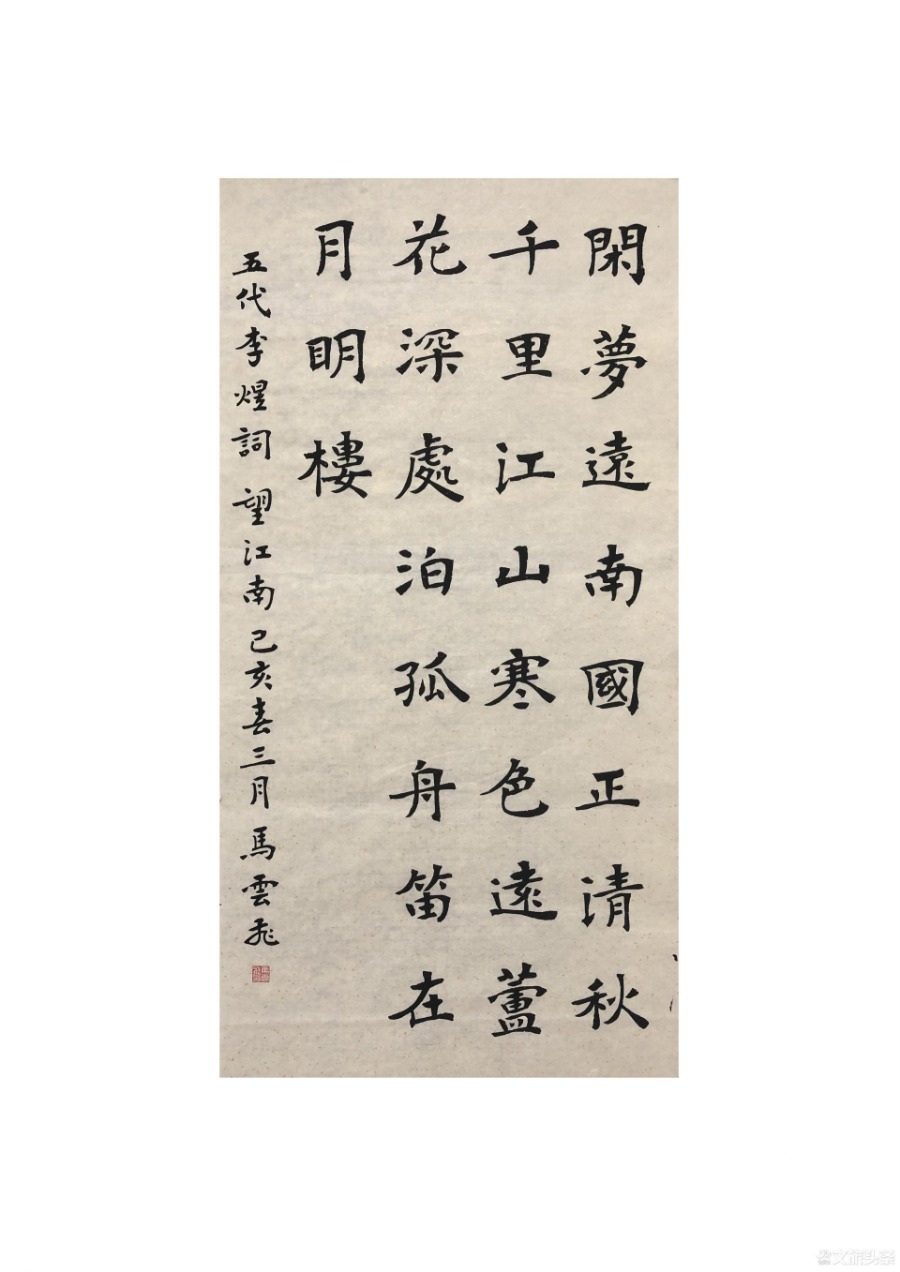 閑夢遠南國正清秋
千里江山寒色遠蘆
花深處泊孤舟笛在
月明樓
五代李煜詞望江南己亥春三月馬雲飛
文旅头条